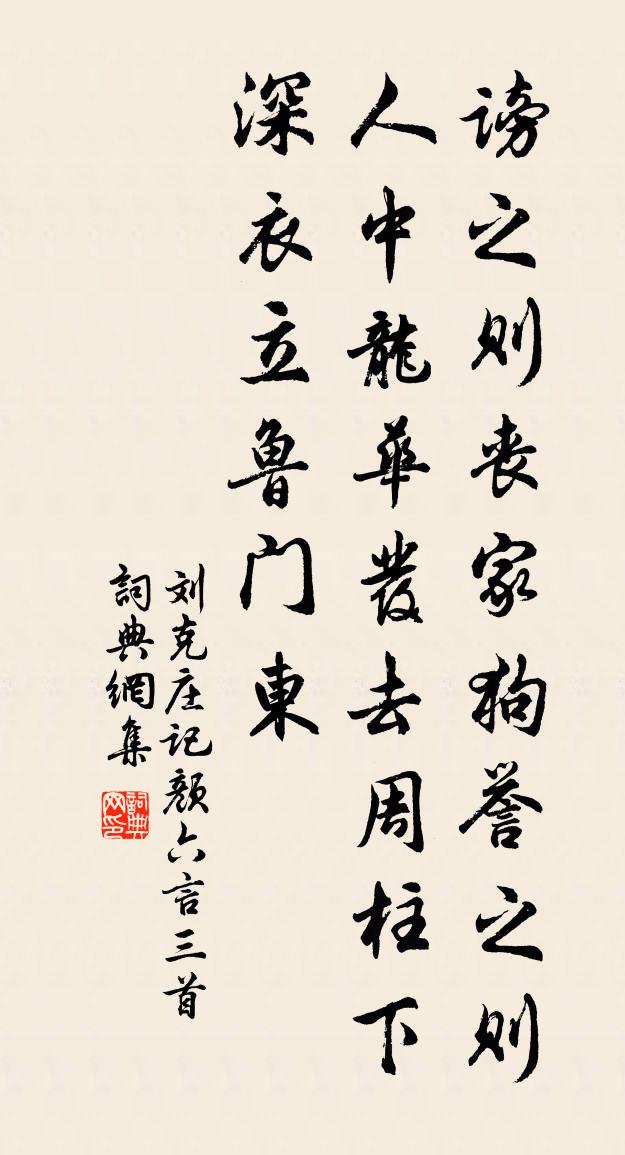 謗之則喪家狗譽之則
人中龍華發去周柱下
深衣立魯门東
刘克庄记颜六言三首
詞典網集
詞典网印